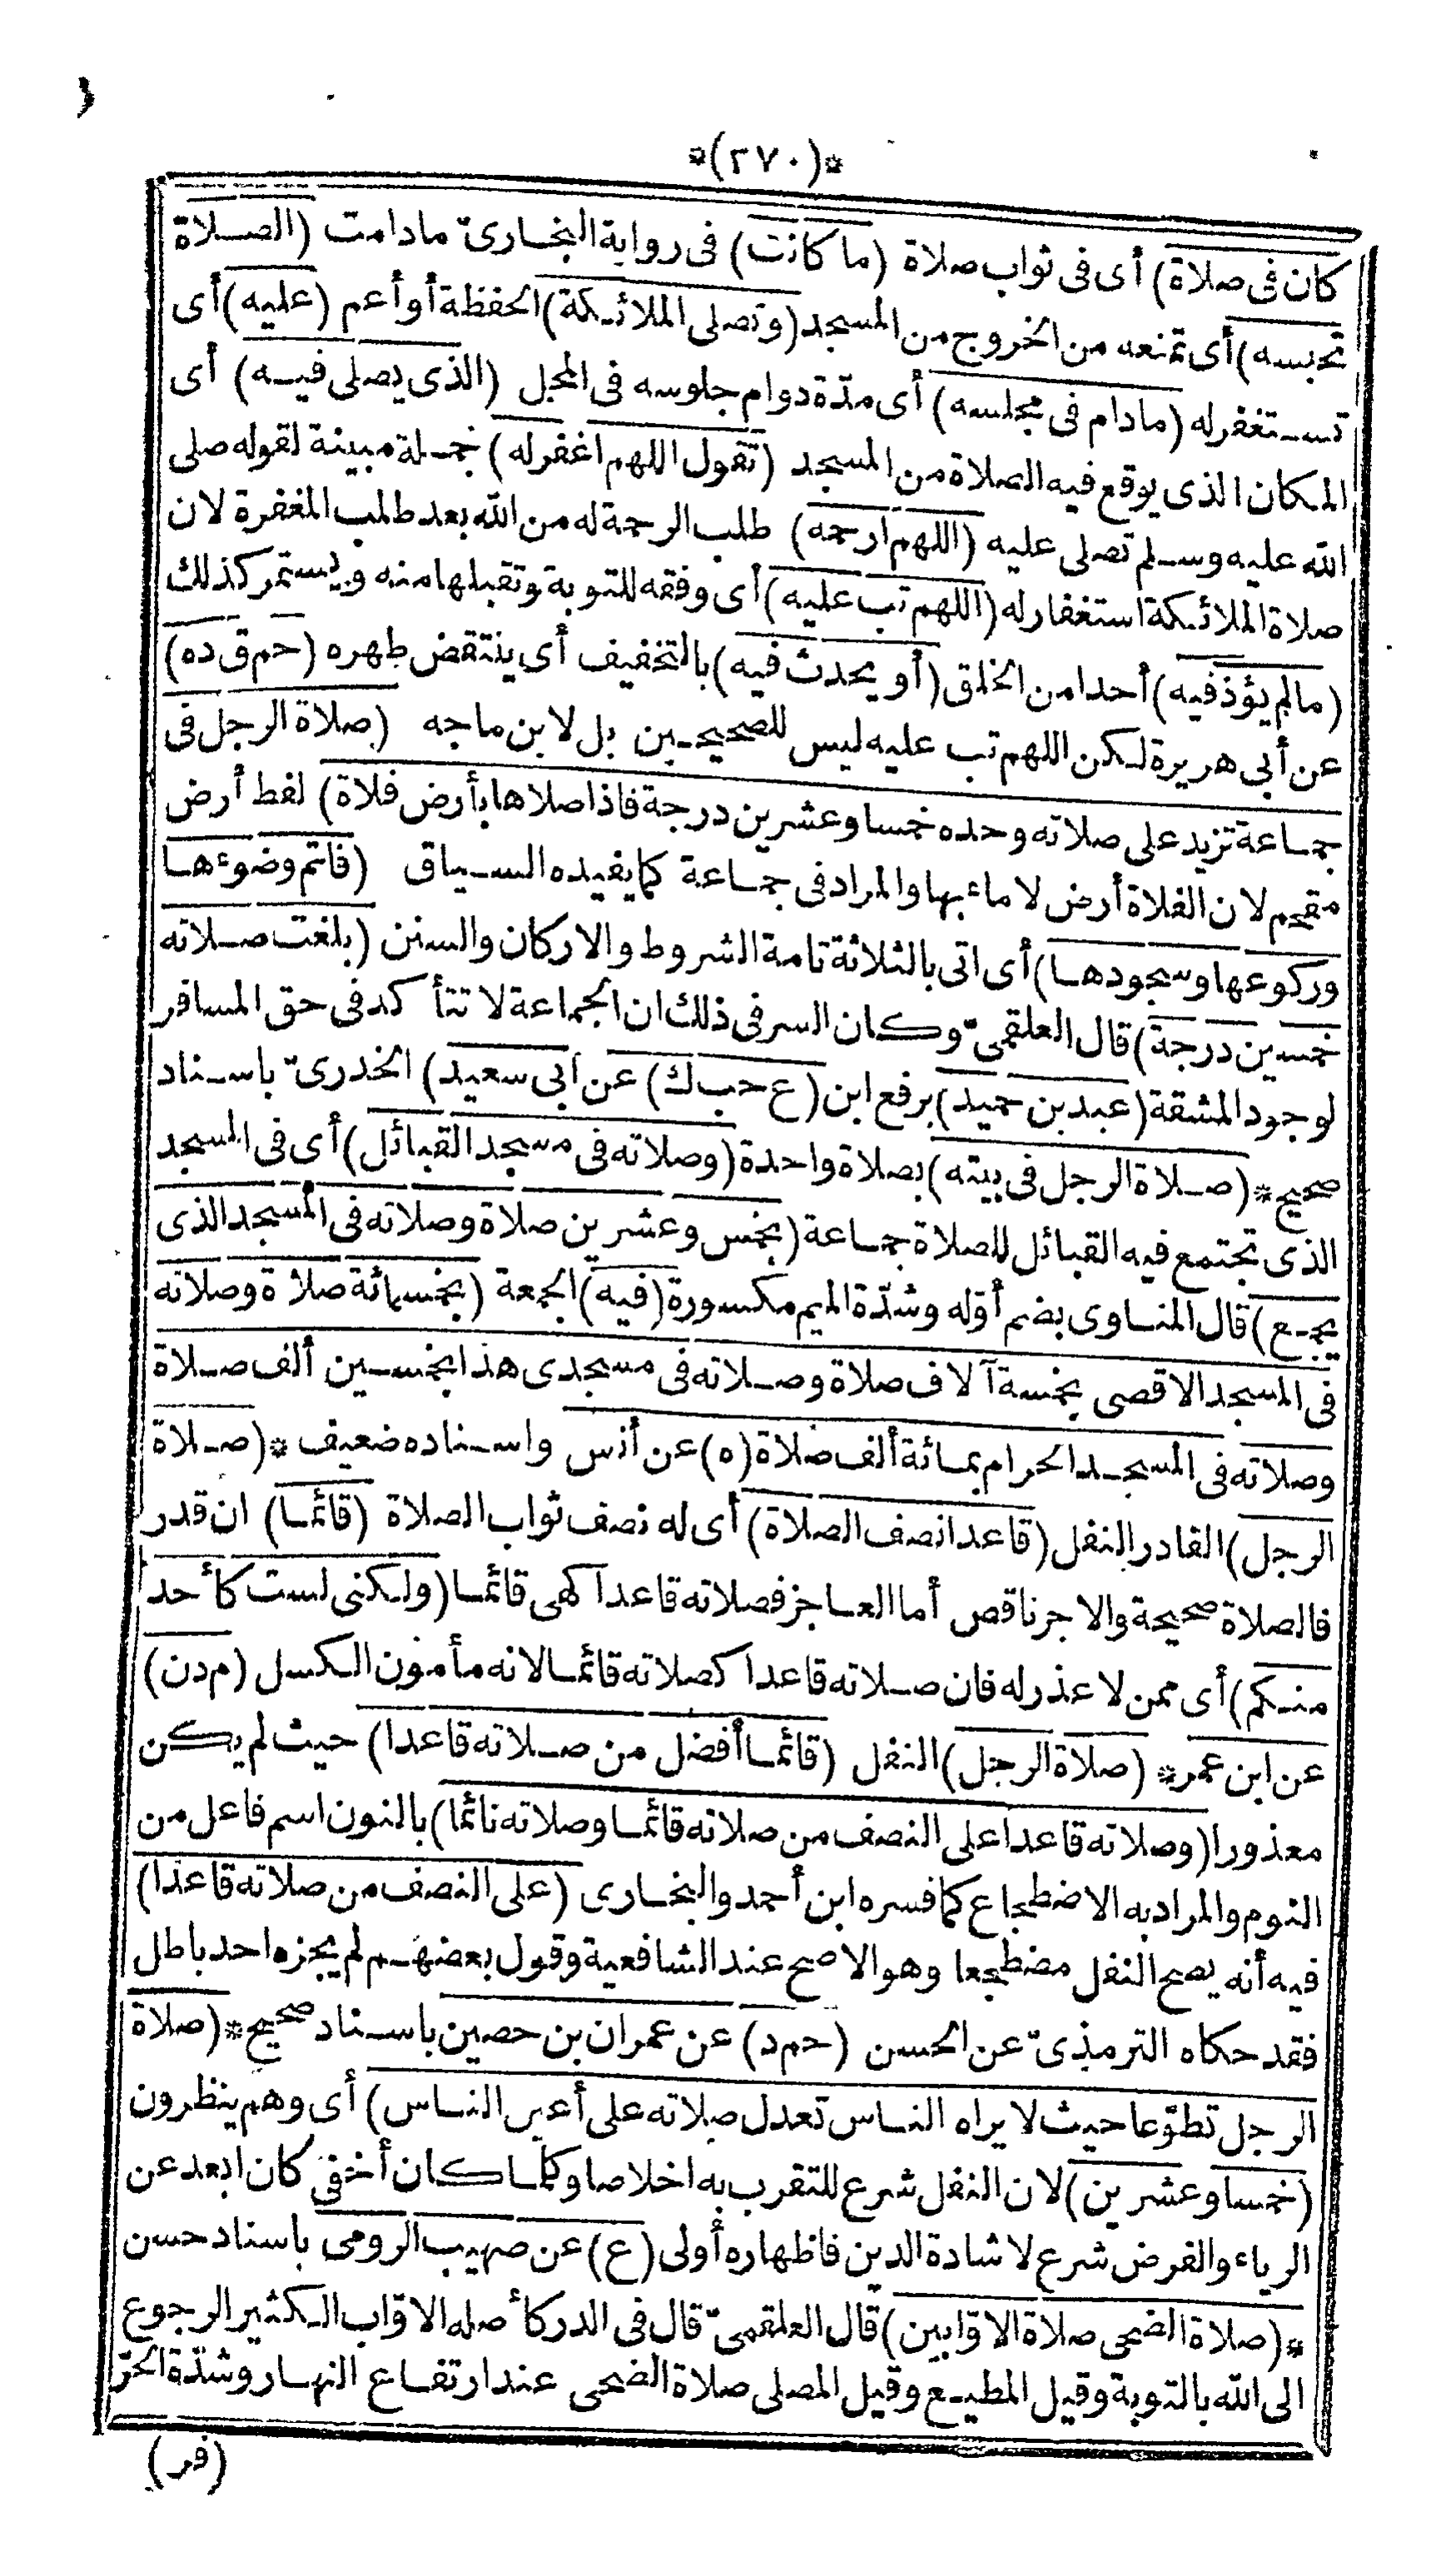 *(٢٧٠)*
كان فى صلاة) أى فى ثواب صلاة (ما كانت) فى رواية البخارىّ مادامت (الصلاة
تحبسه) أى تمنعه من الخروج من المسجد (وتصلى الملائكة) الحفظة أو أعم (عليه) أى
تستغفر له (مادام فى مجلسه) أى مدّة دوام جلوسه فى المحل (الذى يصلى فيه) أى
المكان الذى يوقع فيه الصلاة من المسجد (تقول اللهم اغفر له) جملة مبينة لقوله صلى
الله عليه وسلم تصلى عليه (اللهم ارحمه) طلب الرحمة له من الله بعد طلب المغفرة لان
صلاة الملائكة استغفار له (اللهم تب عليه) أى وفقه للتوبة وتقبلها منه ويستمر كذلك
(مالم يؤذ فيه) أحدا من الخلق (أو يحدث فيه) بالتخفيف أى ينتقض طهره (حم ق ده)
عن أبى هريرة لكن اللهم تب عليه ليس للصحيحين بل لابن ماجه (صلاة الرجل فى
جماعة تزيد على صلاته وحده خمسا وعشرين درجة فاذا صلاها بأرض فلاة) لفظ أرض
مقحم لان الفلاة أرض لا ماء بها والمراد فى جماعة كما يفيده السياق (فاتم وضوءها
وركوعها وسجودها) أى اتى بالثلاثة تامة الشروط والاركان والسنن (بلغت صلاته
خمسين درجة) قال العلقمىّ وكان السر فى ذلك ان الجماعة لا تتأكد فى حق المسافر
لوجود المشقة (عبد بن حميد) برفع ابن (ع حب ك) عن أبى سعيد) الخدرىّ باسناد
صحيح * (صلاة الرجل فى بيته) بصلاة واحدة (وصلاته فى مسجد القبائل) أى فى المسجد
الذى تجتمع فيه القبائل للصلاة جماعة (بخمس وعشرين صلاة وصلاته فى المسجد الذى
يجمع) قال المناوى بضم أوّله وشدّة الميم مكسورة (فيه) الجمعة (بخمسمائة صلاة وصلاته
فى المسجد الاقصى بخمسة آلاف صلاة وصلاته فى مسجدى هذا بخمسين ألف صلاة
وصلاته فى المسجد الحرام بمائة ألف صلاة (ه) عن أنس واسناده ضعيف * (صلاة
الرجل) القادر النفل (قاعدا نصف الصلاة) أى له نصف ثواب الصلاة (قائما) ان قدر
فالصلاة صحيحة والاجر ناقص أما العاجز فصلاته قاعدا كهى قائما (ولكنى لست كأحد
منكم) أى ممن لا عذر له فان صلاته قاعدا كصلاته قائما لانه مأمون الكسل (م د ن)
عن ابن عمر * (صلاة الرجل) النفل (قائما أفضل من صلاته قاعدا) حيث لم يكن
معذورا (وصلاته قاعدا على النصف من صلاته قائما وصلاته نائما) بالنون اسم فاعل من
النوم والمراد به الاضطجاع كما فسره ابن أحمد والبخارى (على النصف من صلاته قاعدا)
فيه أنه يصح النفل مضطجعا وهو الاصح عند الشافعية وقول بعضهم لم يجزه احد باطل
فقد حكاه الترمذىّ عن الحسن (حم د) عن عمران بن حصين باسناد صحيح * (صلاة
الرجل تطوّعا حيث لا يراه الناس تعدل صلاته على أعين الناس) أى وهم ينظرون
(خمسا وعشرين) لان النفل شرع للتقرب به اخلاصا وكلما كان أخفى كان ابعد عن
الرياء والفرض شرع لاشادة الدين فاظهاره أولى (ع) عن صهيب الرومى باسناد حسن
* (صلاة الضحى صلاة الاوّابين) قال العلقمىّ قال فى الدر كأصله الاوّاب الكثير الرجوع
الى الله بالتوبة وقيل المطيع وقيل المصلى صلاة الضحى عند ارتفاع النهار وشدّة الحرّ
(فر)